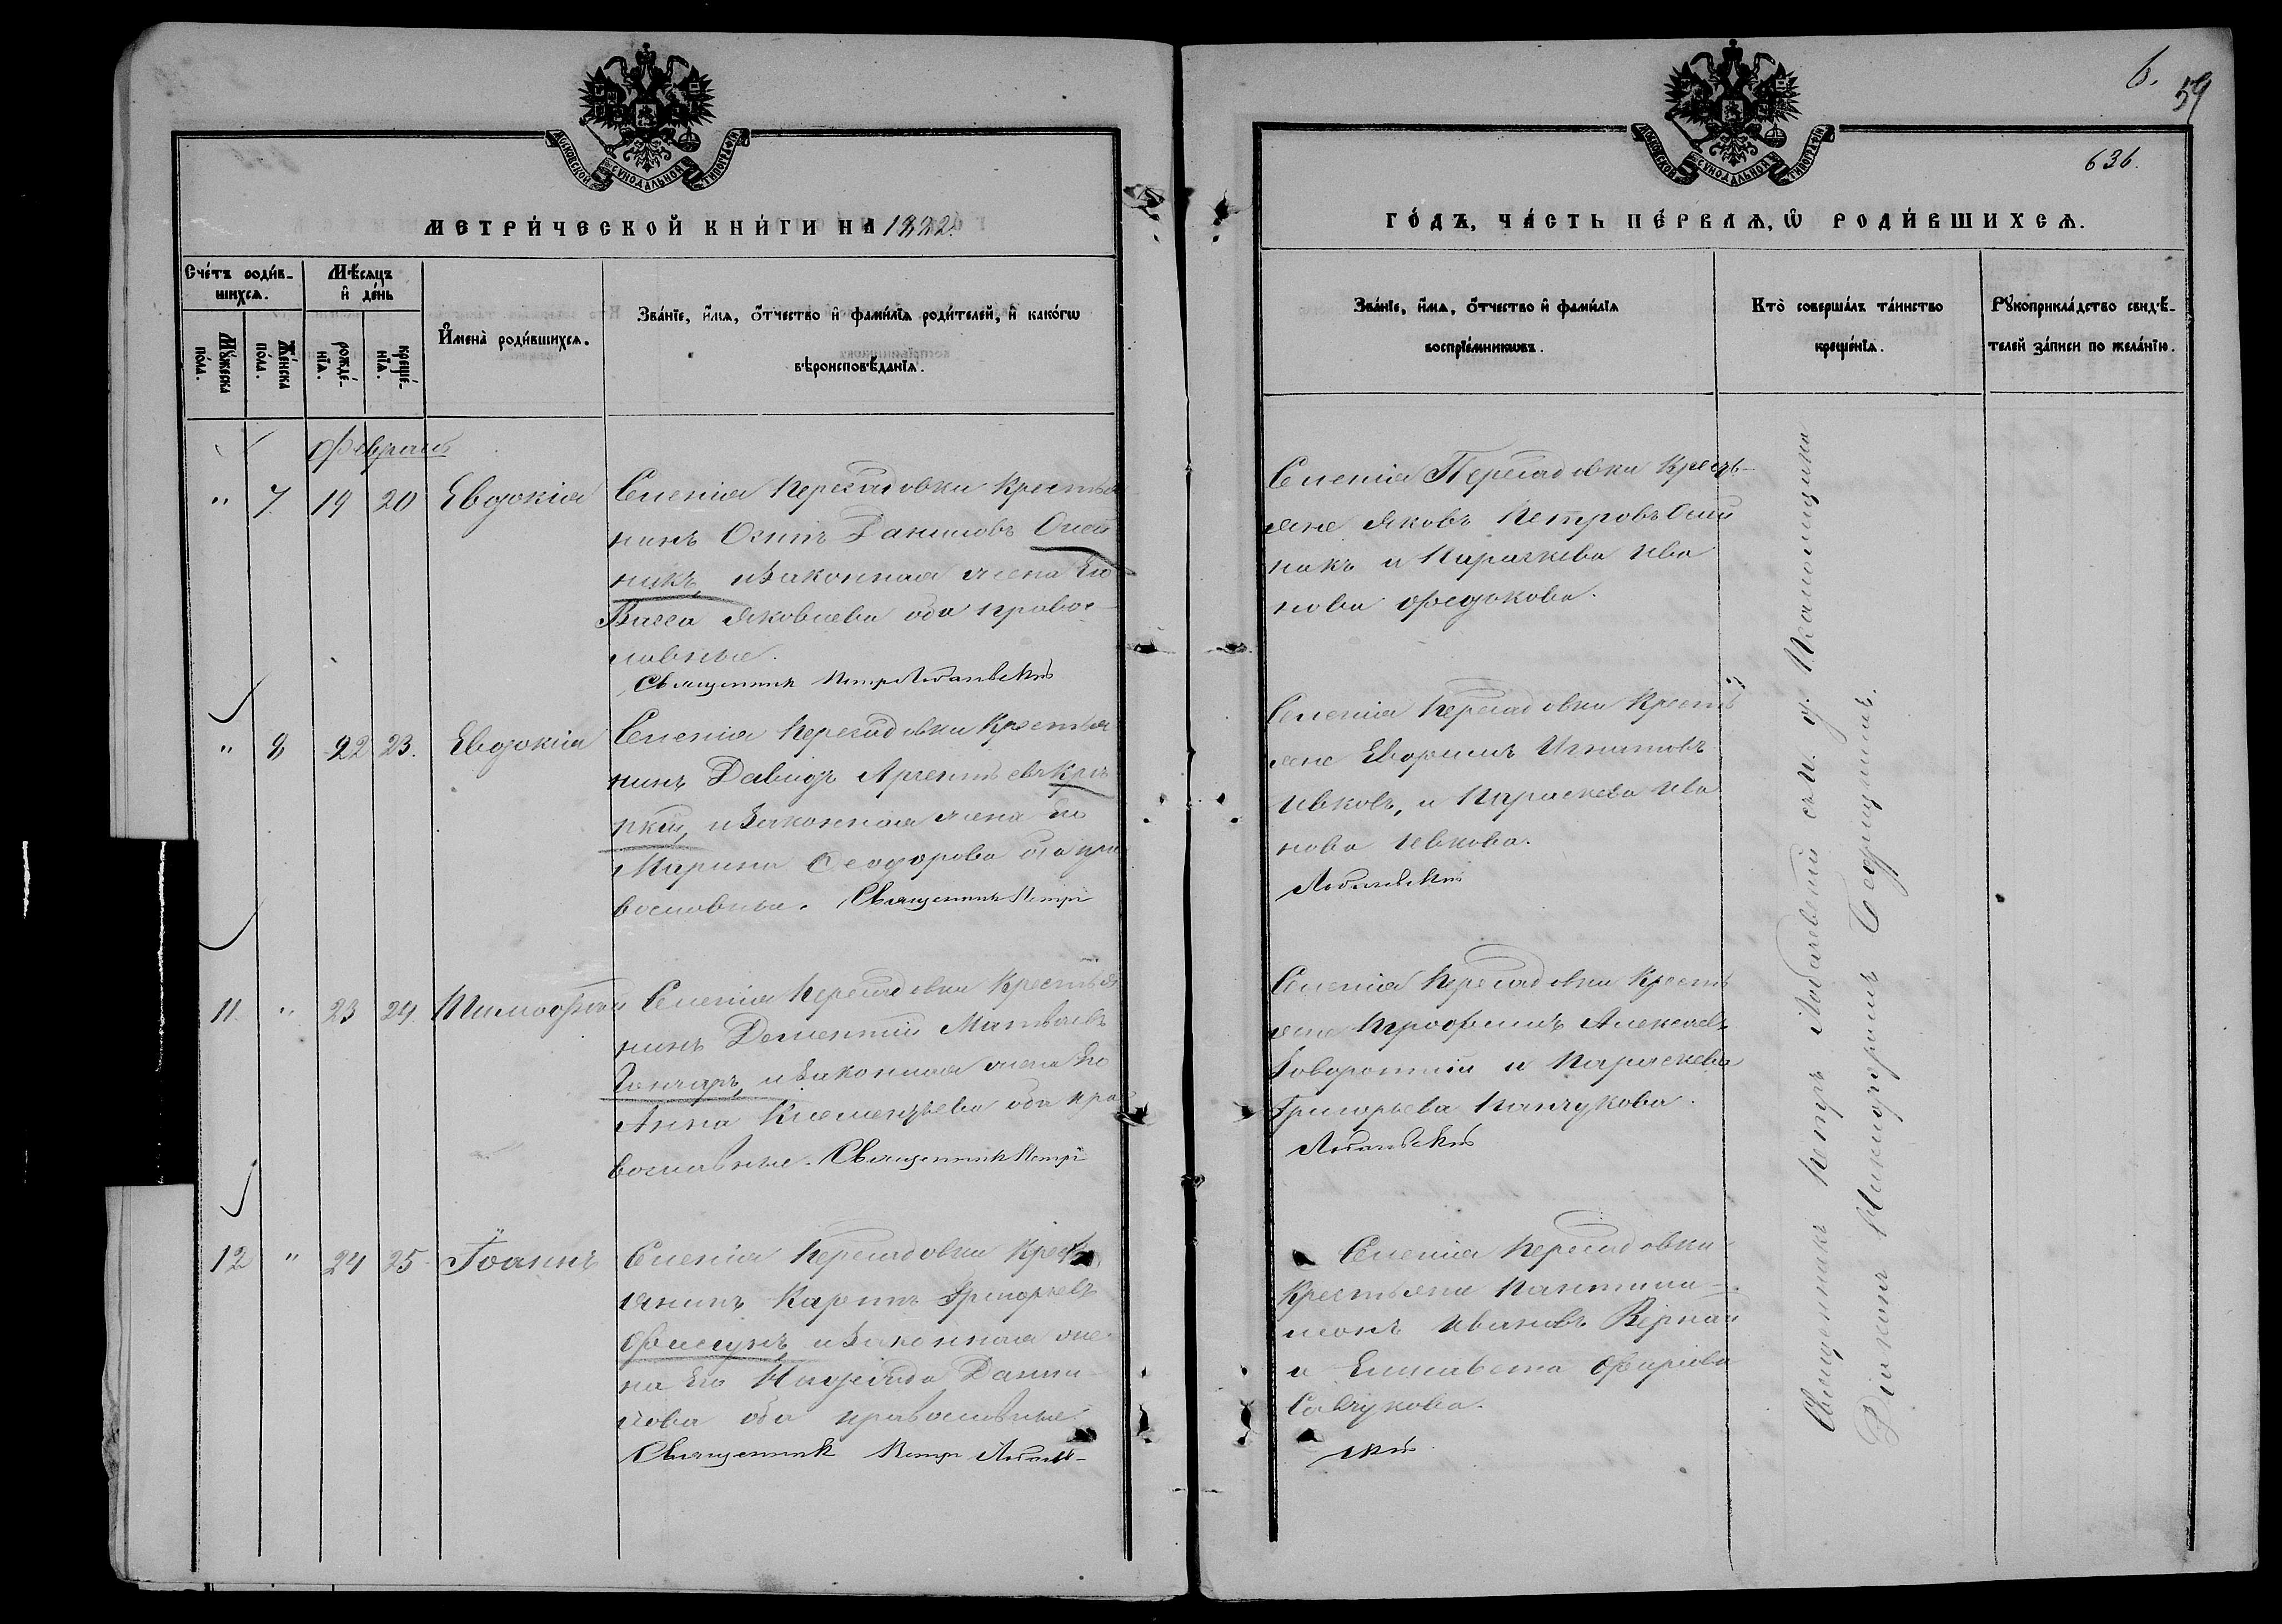 МОСКОВСКОЙ СѴНОДАЛЬНОЙ ТИПОГРАФІИ
МЕТРИ́ЧЕСКОЙ КНИ́ГИ НА 1882.
Сче́тъ роди́в-
шихсѧ.
Мѣ́сяцъ
и҆ де́нь
Мꙋ́жеска
по́ла.
Же́нска
по́ла.
рожде́-
нїѧ.
креще́-
нїѧ.
И҆мена̀ роди́вшихсѧ.
Зва́нїе, и҆́мѧ, ѻ҆́тчество и҆ фами́лїѧ роди́телей, и҆ како́гѡ
вѣроисповѣ́данїѧ.
Февраль
" 7 19 20 Евдокія
Селенія Пересадовки Крестья
нинъ Осипъ Даниловъ Олей
никъ, и законная жена Его
Васса Яковлева оба правос-
лавные.
Священник Петр Лобачевскій
" 8 22 23. Евдокія
Селенія Пересадовки Крестья
нинъ Давидъ Арсентьевъ
и законная жена Его
Марина Феодорова оба пра
вославные. Священникъ Петръ
11 " 23 24 Тимофей
Селенія Пересадовки Крестья
нинъ Дементий Матвеевъ
Гончаръ, и законная жена Его
Анна Клементьева оба пра
вославные. Священникъ Петръ
12 " 24 25 Іоаннъ
Селенія Пересадовки Крест
янинъ Карпъ Григорьевъ
и законная же-
на Его Надежда Дани-
лова оба православные.
Священник Петр Лобачев-
МОСКОВСКОЙ СѴНОДАЛЬНОЙ ТИПОГРАФІИ
6. 59
636.
ГО́ДЪ, ЧА́СТЬ ПЕ́РВАѦ, Ѡ҆ РОДИ́ВШИХСѦ.
Зва́нїе, и҆́мѧ, ѻ҆́тчество и҆ фами́лїѧ
воспрїе́мникѡвъ.
Кто̀ соверша́лъ та́инство
креще́нїѧ.
Рꙋкоприкла́дство свидѣ́-
телей за́писи по жела́нїю.
Селенія Пересадовки Кресть-
яне Яковъ Петровъ Олей
никъ и Параскева Ива
нова Федькова.
Селенія Пересадовки Кресть
яне Евфимъ Игнатовъ
Ивковъ, и Параскева Ива
нова Ивкова.
Лобачевскій
Селенія Пересадовки Кресть
яне Трофимъ Алексеевъ
и Параскева
Григорьева Панчукова.
Лобачевскій
Селенія Пересадовки
Крестьяне Пантели-
монъ Ивановъ
и Елисавета
Савчукова.
скій
Священникъ Петръ Лобачевскій съ И. д. Псаломщика
Діакономъ Никифоромъ